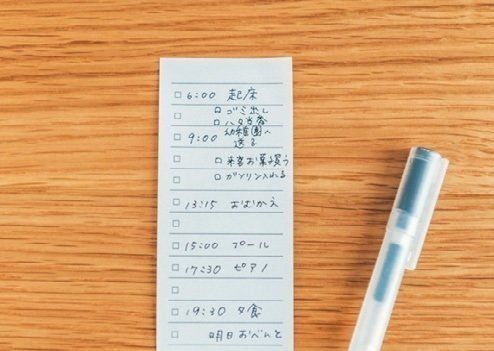 □ 6:00 起床
□ ゴミ出し
□ ハタ当番
□ 9:00 幼稚園へ
送る
□ 来客お菓子買う
□ ガソリン入れる
□ 13:15 おむかえ
□ 15:00 プール
□ 17:30 ピアノ
□ 19:30 夕食
□ 明日おべんと